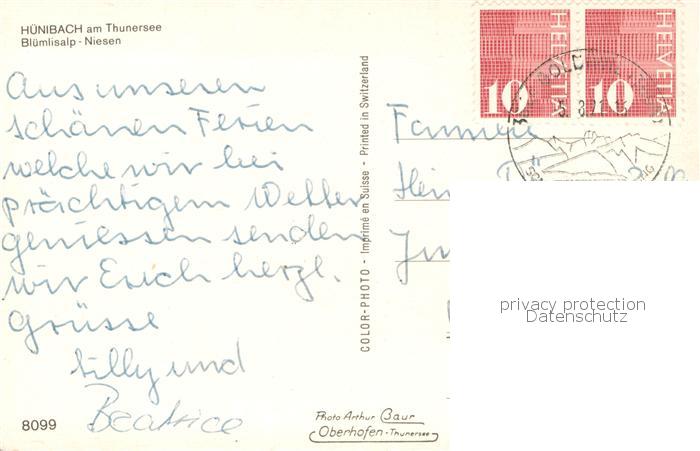 HÜNIBACH am Thunersee
Blümlisalp - Niesen
Aus unseren
schönen Ferien
welche wir bei
prächtigem Wetter
geniessen senden
wir Euch herzl.
Grüsse
Silly und
Beatrice
8099
COLOR-PHOTO - Imprimé en Suisse - Printed in Switzerland
Photo Arthur Baur
Oberhofen-Thunersee
HELVETIA
10
HELVETIA
10
Familie
privacy protection
Datenschutz